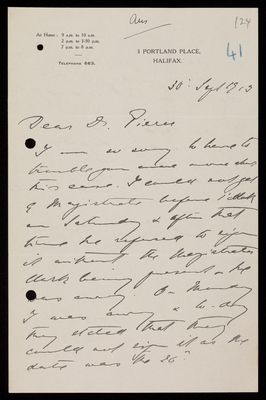 Ans
124
At Home: 9 a.m. to 10 a.m.
2 p.m. to 3-30 p.m.
7 p.m. to 8 p.m.
TELEPHONE 663.
3 PORTLAND PLACE,
HALIFAX.
41
30: Sept 1913
Dear Dr. Pierce
I am so sorry to have to
trouble you once more about
this case. I could not get
a Magistrate before 1 o'clock
on Saturday & after that
time he refused to sign
it without the Magistrates
clerk being present & he
was away. On Monday
I was away & to-day
they stated that they
could not sign it as the
date was the 26th